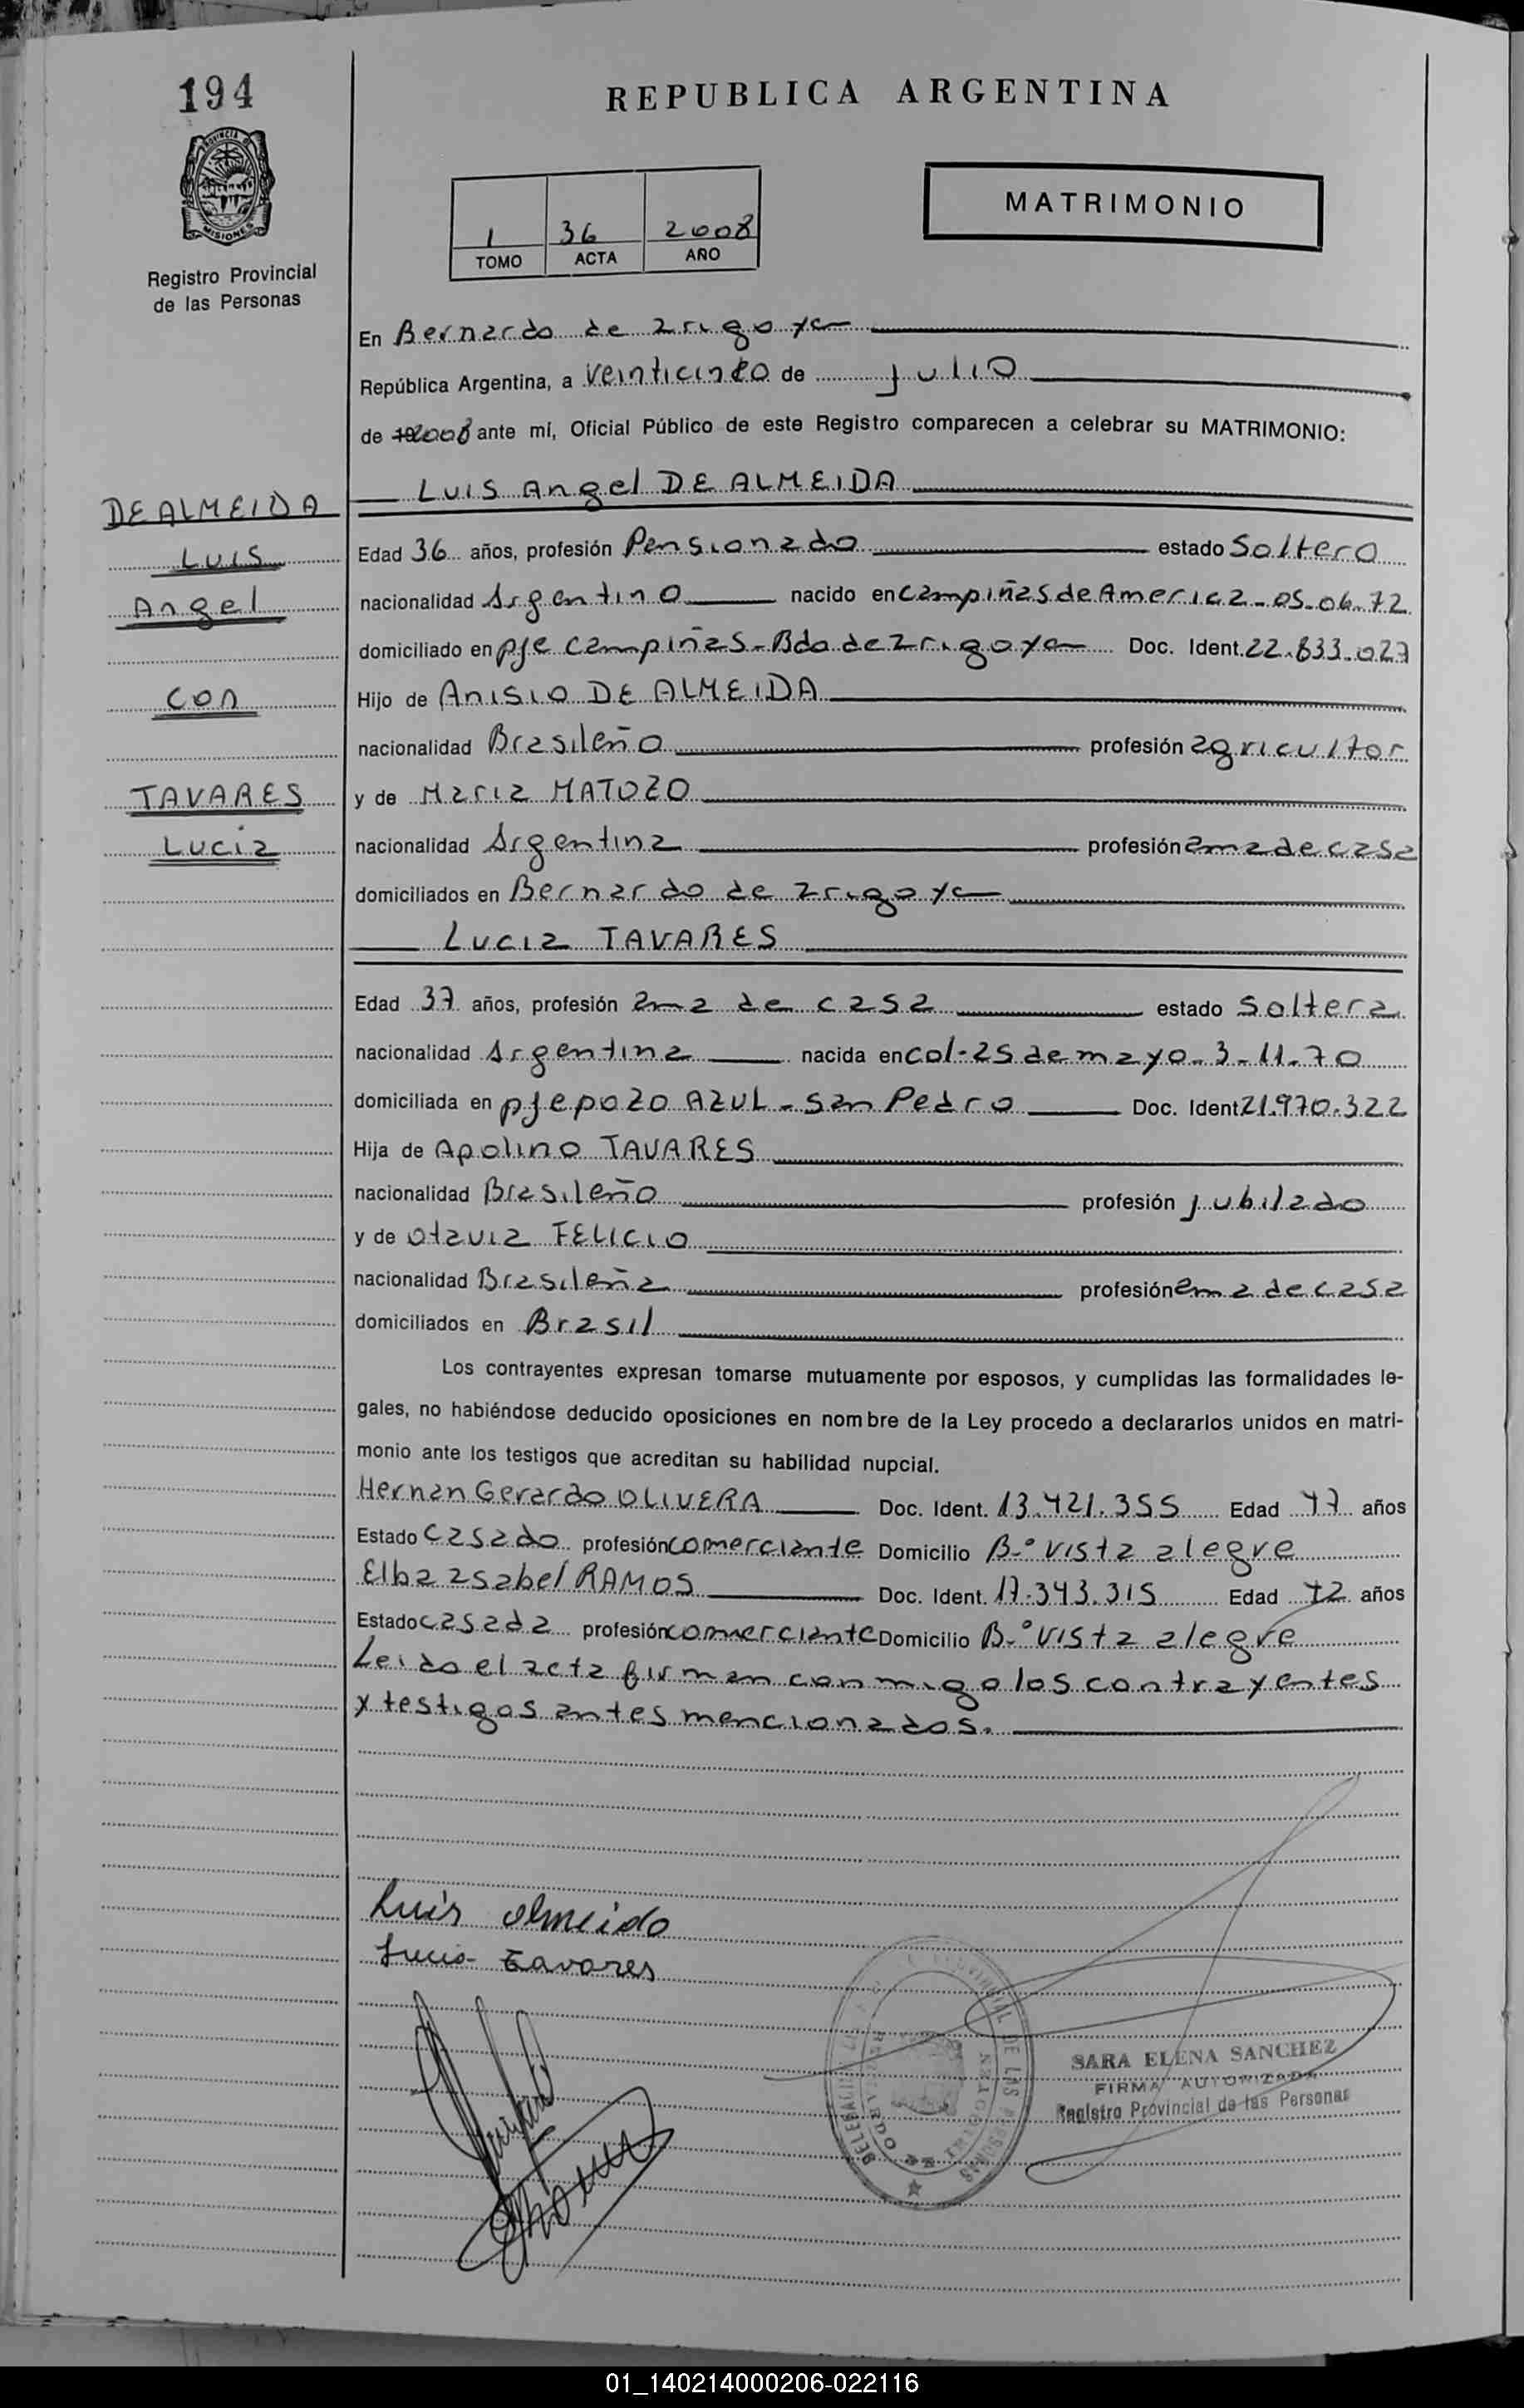 194
PROVINCIA
MISIONES
Registro Provincial
de las Personas
REPUBLICA ARGENTINA
1 36 2008
TOMO ACTA AÑO
MATRIMONIO
En Bernardo de Irigoyen
República Argentina, a veinticinco de julio
de 2008 ante mí, Oficial Público de este Registro comparecen a celebrar su MATRIMONIO:
DE ALMEIDA
Luis
Angel
con
TAVARES
Lucia
Luis Angel DE ALMEIDA
Edad 36 años, profesión Pensionado estado Soltero
nacionalidad Argentino nacido en campiñas de America - 05-06-72
domiciliado en pje campiñas - Bdo de Irigoyen Doc. Ident. 22.833.027
Hijo de Anisio DE ALMEIDA
nacionalidad Brasileño profesión agricultor
y de Maria MATOZO
nacionalidad Argentina profesión ama de casa
domiciliados en Bernardo de Irigoyen
Lucia TAVARES
Edad 37 años, profesión ama de casa estado soltera
nacionalidad Argentina nacida en col-25 de mayo - 3-11-70
domiciliada en pje pozo AZUL - San Pedro Doc. Ident 21.970.322
Hija de Apolino TAVARES
nacionalidad Brasileño profesión jubilado
y de Otavia FELICIO
nacionalidad Brasileña profesión ama de casa
domiciliados en Brasil
Los contrayentes expresan tomarse mutuamente por esposos, y cumplidas las formalidades le-
gales, no habiéndose deducido oposiciones en nombre de la Ley procedo a declararlos unidos en matri-
monio ante los testigos que acreditan su habilidad nupcial.
Hernan Gerardo OLIVERA Doc. Ident. 13.421.355 Edad 47 años
Estado casado profesión comerciante Domicilio B.º vista alegre
Elba Isabel RAMOS Doc. Ident. 17.343.315 Edad 42 años
Estado casada profesión comerciante Domicilio B.º vista alegre
Leido el acta firman conmigo los contrayentes
y testigos antes mencionados.
Luis Almeida
Lucia Tavares
SARA ELENA SANCHEZ
FIRMA AUTORIZADA
Registro Provincial de las Personas
01_140214000206-022116